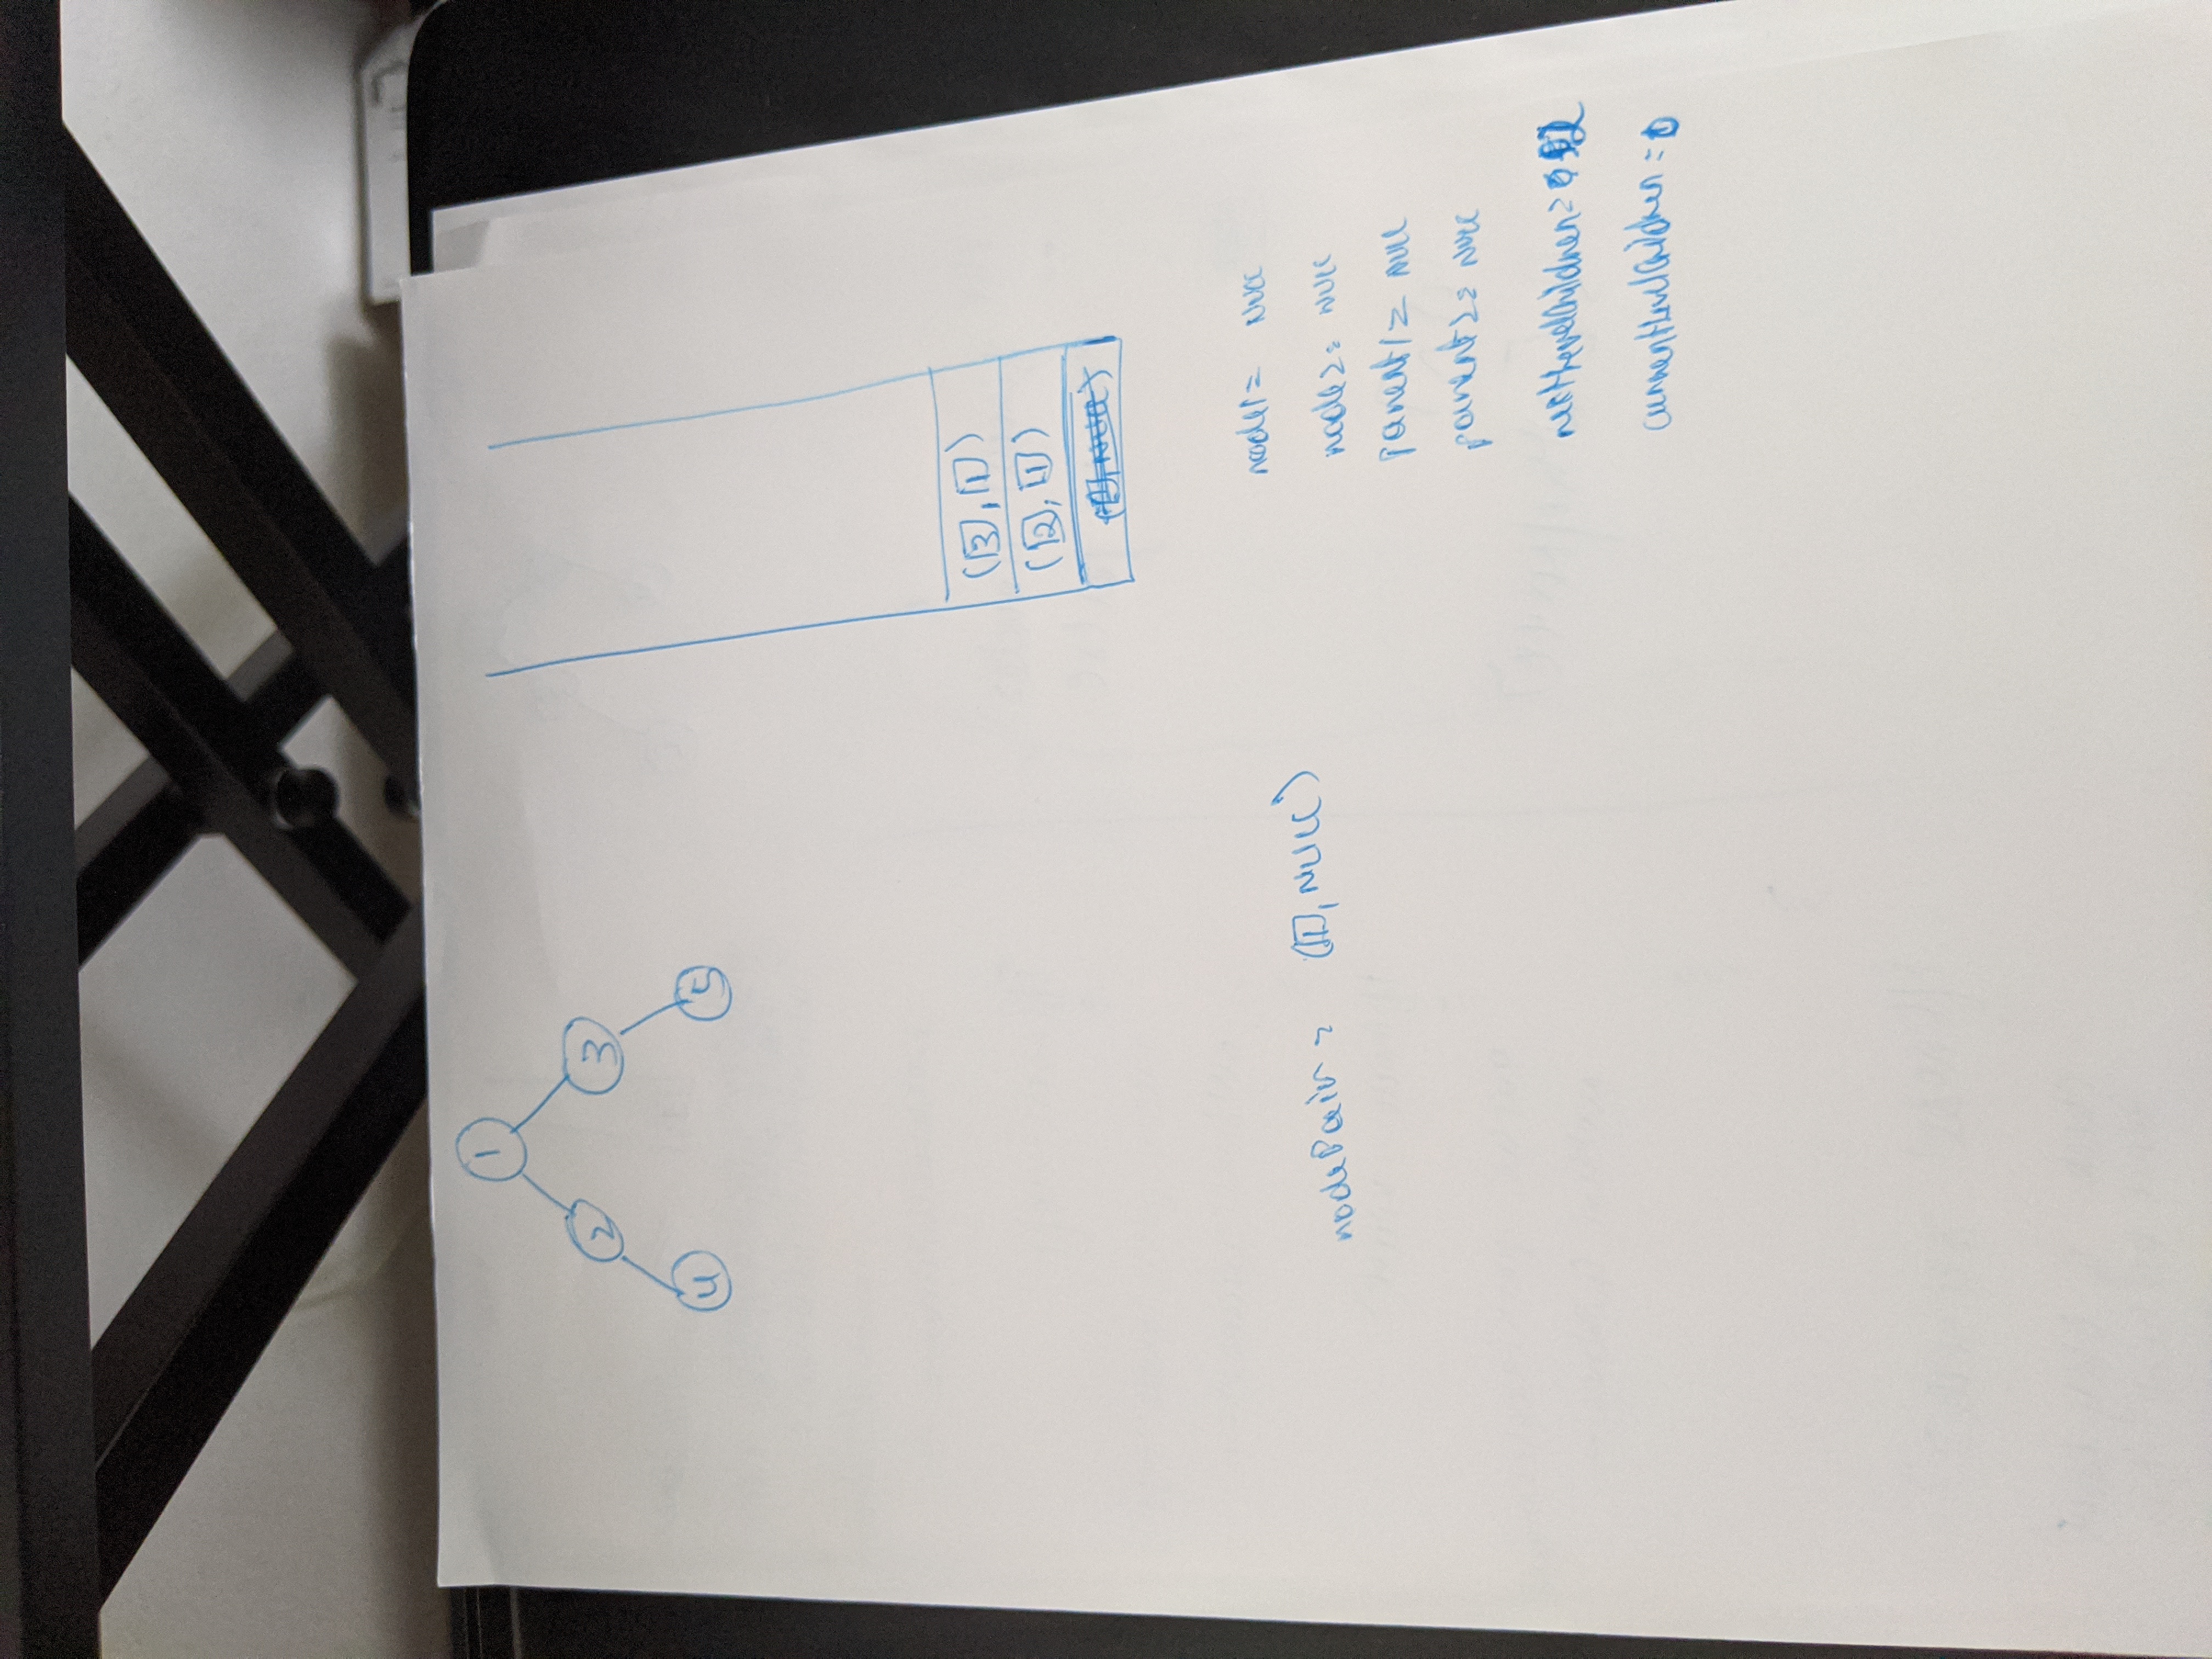 1
2 3
4 5
(3, 1)
(2, 1)
(1, NULL)
nodePair = (1, NULL)
node1 = NULL
node2 = NULL
parent1 = NULL
parent2 = NULL
nextLevelChildren = 0 1 2
currentLevelChildren = 0